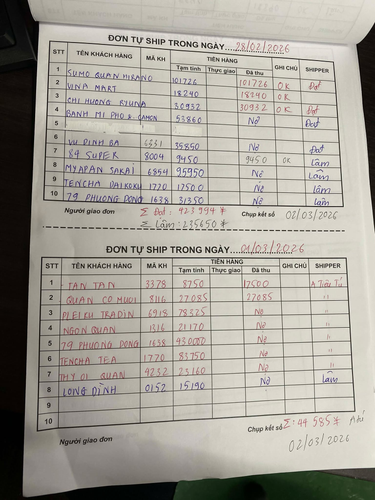 ĐƠN TỰ SHIP TRONG NGÀY 28/02/2026
STT TÊN KHÁCH HÀNG MÃ KH TIỀN HÀNG GHI CHÚ SHIPPER
Tạm tính Thực giao Đã thu
1 SUMO QUAN MIRANO 101726 101726 OK Đạt
2 VINA MART 18240 18240 OK
3 CHI HUONG RYUNA 30932 30932 OK Đạt
4 BANH MI PHO & CAMON 53860 Nợ Đạt
5
6 VU DINH BA 6331 35850 Nợ Đạt
7 84 SUPER 8004 9450 9450 OK Lâm
8 MYAPAN SAKAI 6854 95950 Nợ Lâm
9 TENCHA DAIKOKU 1770 12500 Nợ lâm
10 79 PHUONG DONG 1638 31350 Nợ lâm
Người giao đơn Σ Đạt: 423 994 ¥ Chụp kết sổ 02/03/2026
Σ Lâm: 235650 ¥
ĐƠN TỰ SHIP TRONG NGÀY 01/03/2026
STT TÊN KHÁCH HÀNG MÃ KH TIỀN HÀNG GHI CHÚ SHIPPER
Tạm tính Thực giao Đã thu
1 TAN TAN 3378 8750 17500 A
2 QUAN CO MUOI 8116 27085 27085 "
3 PLEIKU TRADIN 6918 78325 Nợ "
4 NGON QUAN 1316 21170 Nợ "
5 79 PHUONG DONG 1638 430000 Nợ "
6 TENCHA TEA 1770 83750 Nợ "
7 THY OI QUAN 4232 23160 Nợ "
8 LONG DINH 0152 15190 Nợ Lâm
9
10
Người giao đơn Chụp kết sổ Σ: 44 585 ¥
02/03/2026